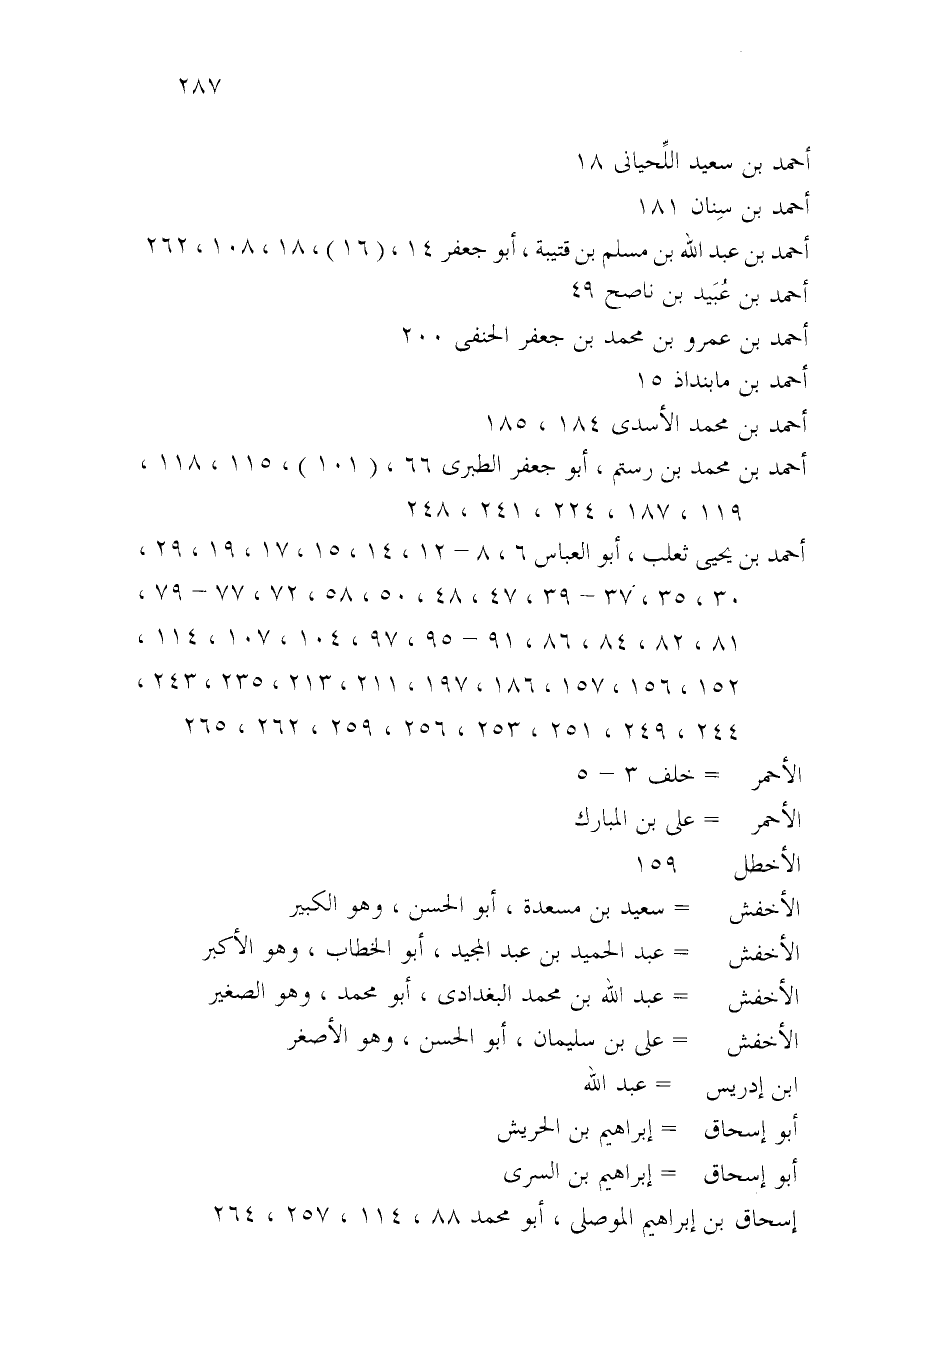 ٢٨٧
أحمد بن سعيد اللِّحيانى ١٨
أحمد بن سِنان ١٨١
أحمد بن عبد الله بن مسلم بن قتيبة ، أبو جعفر ١٤ ، ( ١٦ ) ، ١٨ ، ١٠٨ ، ٢٦٢
أحمد بن عُبَيد بن ناصح ٤٩
أحمد بن عمرو بن محمد بن جعفر الحنفى ٢٠٠
أحمد بن مابنداذ ١٥
أحمد بن محمد الأسدى ١٨٤ ، ١٨٥
أحمد بن محمد بن رستم ، أبو جعفر الطبرى ٦٦ ، ( ١٠١ ) ، ١١٥ ، ١١٨ ،
١١٩ ، ١٨٧ ، ٢٢٤ ، ٢٤١ ، ٢٤٨
أحمد بن يحيى ثعلب ، أبو العباس ٦ ، ٨ – ١٢ ، ١٤ ، ١٥ ، ١٧ ، ١٩ ، ٢٩ ،
٣٠ ، ٣٥ ، ٣٧ – ٣٩ ، ٤٧ ، ٤٨ ، ٥٠ ، ٥٨ ، ٧٢ ، ٧٧ – ٧٩ ،
٨١ ، ٨٢ ، ٨٤ ، ٨٦ ، ٩١ – ٩٥ ، ٩٧ ، ١٠٤ ، ١٠٧ ، ١١٤ ،
١٥٢ ، ١٥٦ ، ١٥٧ ، ١٨٦ ، ١٩٧ ، ٢١١ ، ٢١٣ ، ٢٣٥ ، ٢٤٣ ،
٢٤٤ ، ٢٤٩ ، ٢٥١ ، ٢٥٣ ، ٢٥٦ ، ٢٥٩ ، ٢٦٢ ، ٢٦٥
الأحمر = خلف ٣ – ٥
الأحمر = على بن المبارك
الأخطل ١٥٩
الأخفش = سعيد بن مسعدة ، أبو الحسن ، وهو الكبير
الأخفش = عبد الحميد بن عبد المجيد ، أبو الخطاب ، وهو الأكبر
الأخفش = عبد الله بن محمد البغدادى ، أبو محمد ، وهو الصغير
الأخفش = على بن سليمان ، أبو الحسن ، وهو الأصغر
ابن إدريس = عبد الله
أبو إسحاق = إبراهيم بن الحريش
أبو إسحاق = إبراهيم بن السرى
إسحاق بن إبراهيم الموصلى ، أبو محمد ٨٨ ، ١١٤ ، ٢٥٧ ، ٢٦٤